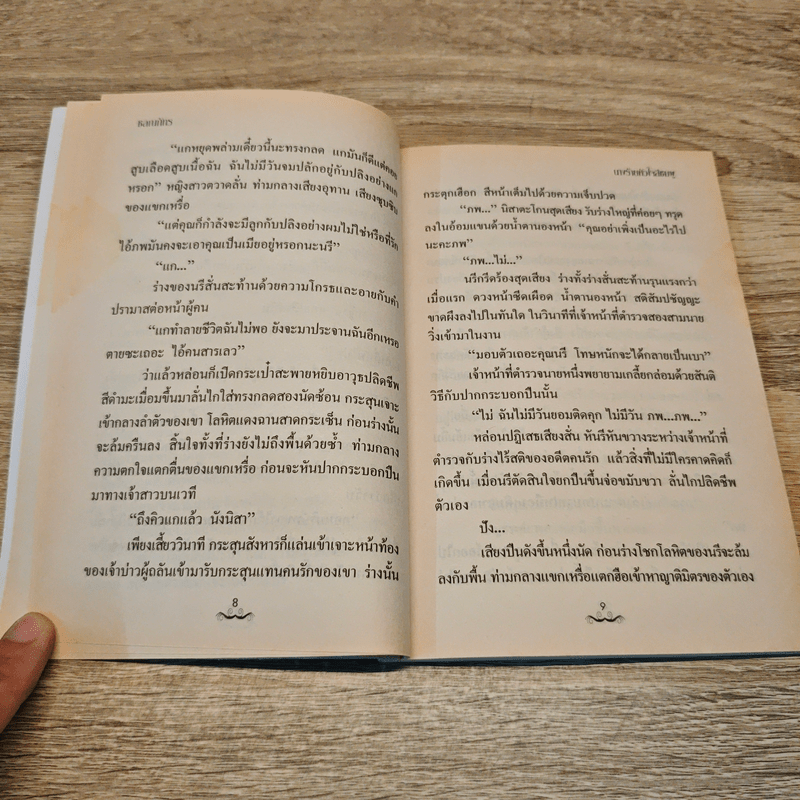 ชลณภัทร
“แกหยุดพล่ามเดี๋ยวนี้นะทรงกลด แกมันก็ดีแต่คอย
สูบเลือดสูบเนื้อฉัน ฉันไม่มีวันจมปลักอยู่กับปลิงอย่างแก
หรอก” หญิงสาวตวาดลั่น ท่ามกลางเสียงอุทาน เสียงซุบซิบ
ของแขกเหรื่อ
“แต่คุณก็กำลังจะมีลูกกับปลิงอย่างผมไม่ใช่หรือที่รัก
ไอ้ภพมันคงจะเอาคุณเป็นเมียอยู่หรอกนะนรี”
“แก...”
ร่างของนรีสั่นสะท้านด้วยความโกรธและอายกับคำ
ปรามาสต่อหน้าผู้คน
“แกทำลายชีวิตฉันไม่พอ ยังจะมาประจานฉันอีกเหรอ
ตายซะเถอะ ไอ้คนสารเลว”
ว่าแล้วหล่อนก็เปิดกระเป๋าสะพายหยิบอาวุธปลิดชีพ
สีดำมะเมื่อมขึ้นมาลั่นไกใส่ทรงกลดสองนัดซ้อน กระสุนเจาะ
เข้ากลางลำตัวของเขา โลหิตแดงฉานสาดกระเซ็น ก่อนร่างนั้น
จะล้มครืนลง สิ้นใจทั้งที่ร่างยังไม่ถึงพื้นด้วยซ้ำ ท่ามกลาง
ความตกใจแตกตื่นของแขกเหรื่อ ก่อนจะหันปากกระบอกปืน
มาทางเจ้าสาวบนเวที
“ถึงคิวแกแล้ว นังนิสา”
เพียงเสี้ยววินาที กระสุนสังหารก็แล่นเข้าเจาะหน้าท้อง
ของเจ้าบ่าวผู้ถลันเข้ามารับกระสุนแทนคนรักของเขา ร่างนั้น
8
กระตุกเฮือก สีหน้าเต็มไปด้วยความเจ็บปวด
“ภพ...” นิสาตะโกนสุดเสียง รับร่างใหญ่ที่ค่อยๆ ทรุด
ลงในอ้อมแขนด้วยน้ำตานองหน้า “คุณอย่าเพิ่งเป็นอะไรไป
นะคะภพ”
“ภพ...ไม่...”
นรีกรีดร้องสุดเสียง ร่างทั้งร่างสั่นสะท้านรุนแรงกว่า
เมื่อแรก ดวงหน้าซีดเผือด น้ำตานองหน้า สติสัมปชัญญะ
ขาดผึงลงไปในทันใด ในวินาทีที่เจ้าหน้าที่ตำรวจสองสามนาย
วิ่งเข้ามาในงาน
“มอบตัวเถอะคุณนรี โทษหนักจะได้กลายเป็นเบา”
เจ้าหน้าที่ตำรวจนายหนึ่งพยายามเกลี้ยกล่อมด้วยสันติ
วิธีกับปากกระบอกปืนนั้น
“ไม่ ฉันไม่มีวันยอมติดคุก ไม่มีวัน ภพ...ภพ...”
หล่อนปฏิเสธเสียงสั่น หันรีหันขวางระหว่างเจ้าหน้าที่
ตำรวจกับร่างไร้สติของอดีตคนรัก แล้วสิ่งที่ไม่มีใครคาดคิดก็
เกิดขึ้น เมื่อนรีตัดสินใจยกปืนขึ้นจ่อขมับขวา ลั่นไกปลิดชีพ
ตัวเอง
ปัง...
เสียงปืนดังขึ้นหนึ่งนัด ก่อนร่างโชกโลหิตของนรีจะล้ม
ลงกับพื้น ท่ามกลางแขกเหรื่อแตกฮือเข้าหาญาติมิตรของตัวเอง
9